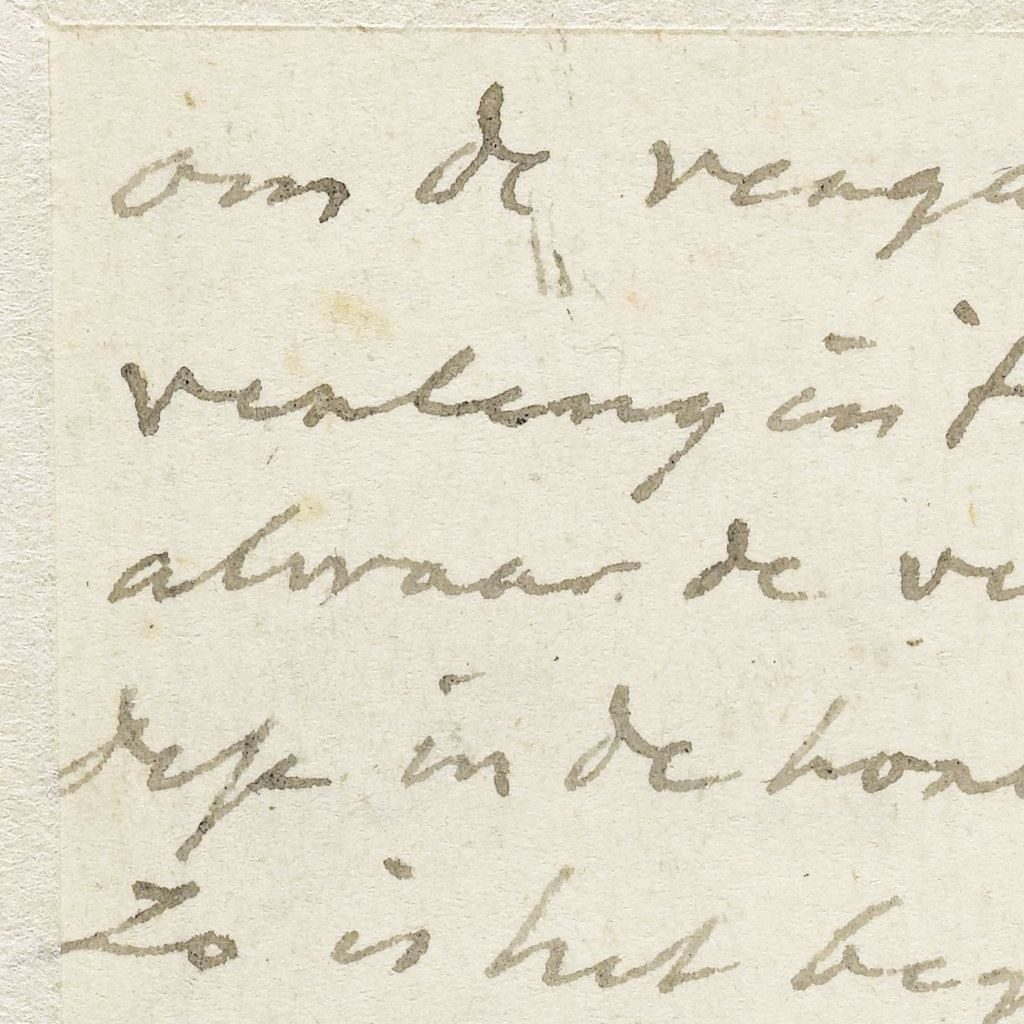 om de verga
verleng in
alwaar de ve
desse in de hon
Zo is het beg